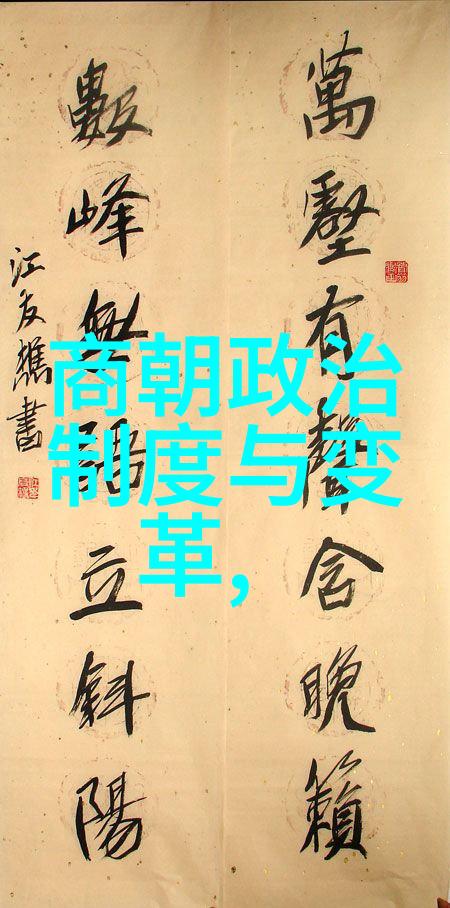 萬壑有聲含晚籟
數峰無語立斜陽
江友樵書
商朝政治
制度与变
革,